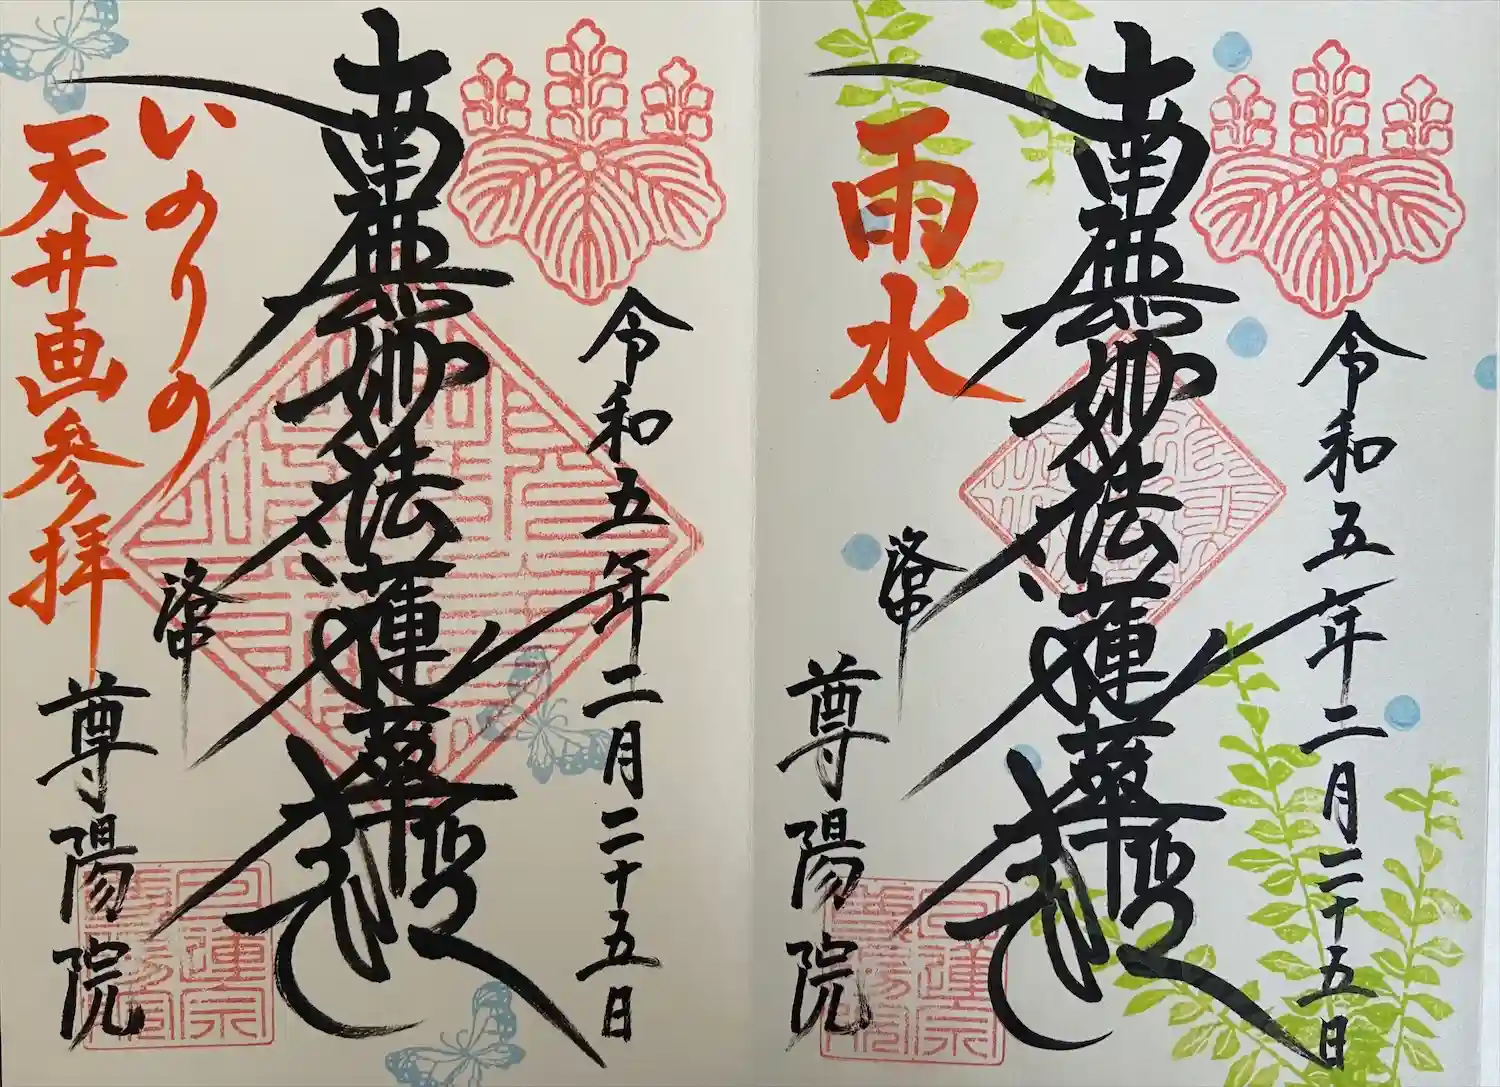 令和五年二月二十五日
南無妙法蓮華経
いのりの
天井画参拝
洛中
尊陽院
令和五年二月二十五日
南無妙法蓮華経
雨水
洛中
尊陽院